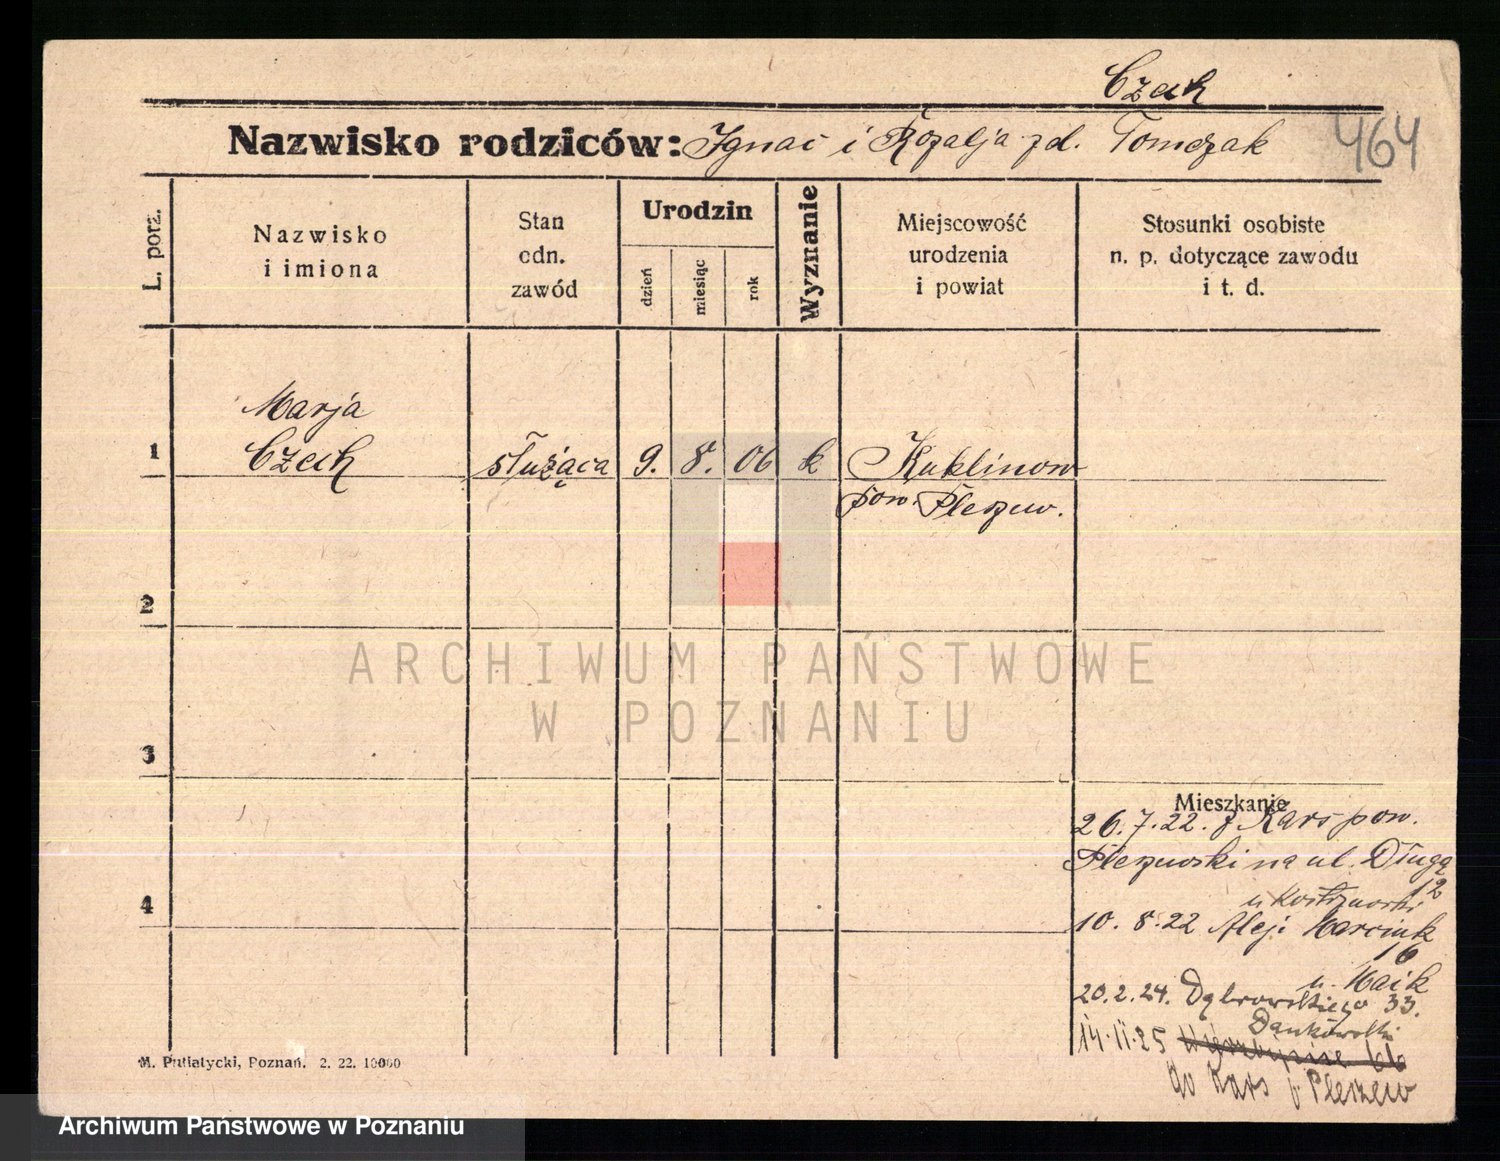 Czech
Nazwisko rodziców: Ignac i Rozalja zd. Tomczak
464
L. porz.
Nazwisko
i imiona
Stan
odn.
zawód
Urodzin
dzień
miesiąc
rok
Wyznanie
Miejscowość
urodzenia
i powiat
Stosunki osobiste
n. p. dotyczące zawodu
i t. d.
Marja
1 Czech służąca 9. 8. 06 k Kuklinow
pow. Pleszew.
2
ARCHIWUM PAŃSTWOWE
W POZNANIU
3
Mieszkanie
26.7.22. z Kars pow.
Pleszewski na ul. Długą
12
4
10. 8.22 Aleji Marcink
16
u. Maik
20.2.24. Dąbrowskiego 33.
14.II.25
do Kars p. Pleszew
M. Putiatycki, Poznań. 2. 22. 10000
Archiwum Państwowe w Poznaniu